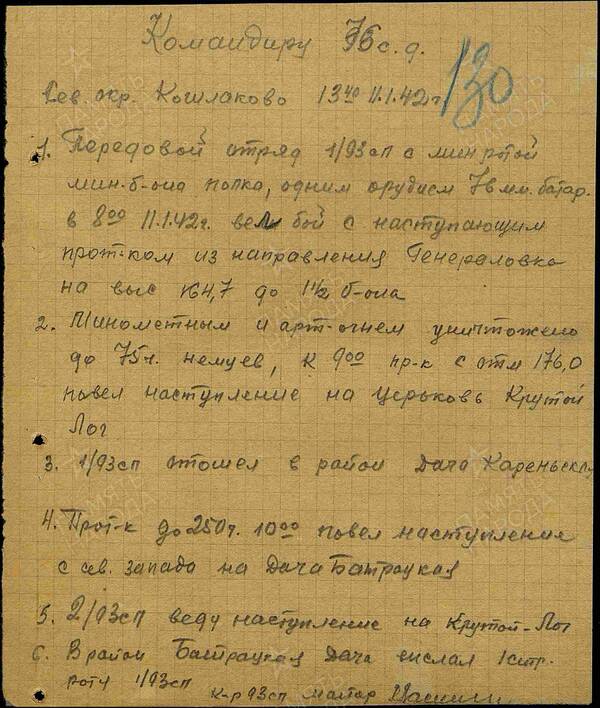 Командиру 76 с.д.
130
Сев. окр. Кошлаково 13⁴⁰ 11.1.42г.
1. Передовой отряд 1/93сп с минротой
мин.б-она полка, одним орудием 76мм. батар.
в 8⁰⁰ 11.1.42г. вел бой с наступающим
прот-ком из направления Генераловка
на выс 164,7 до 1½ б-она
2. Минометным и арт-огнем уничтожено
до 75ч. немцев, к 9⁰⁰ пр-к с отм 176,0
повел наступление на церковь Крутой
Лог
3. 1/93сп отошел в район Дача
4. Прот-к до 250ч. 10⁰⁰ повел наступления
с сев. запада на Дача Батрацкая
5. 2/93сп веду наступление на Крутой-Лог
6. В район Батрацкая Дача выслал 1стр.
роту 1/93сп
к-р 93сп майор